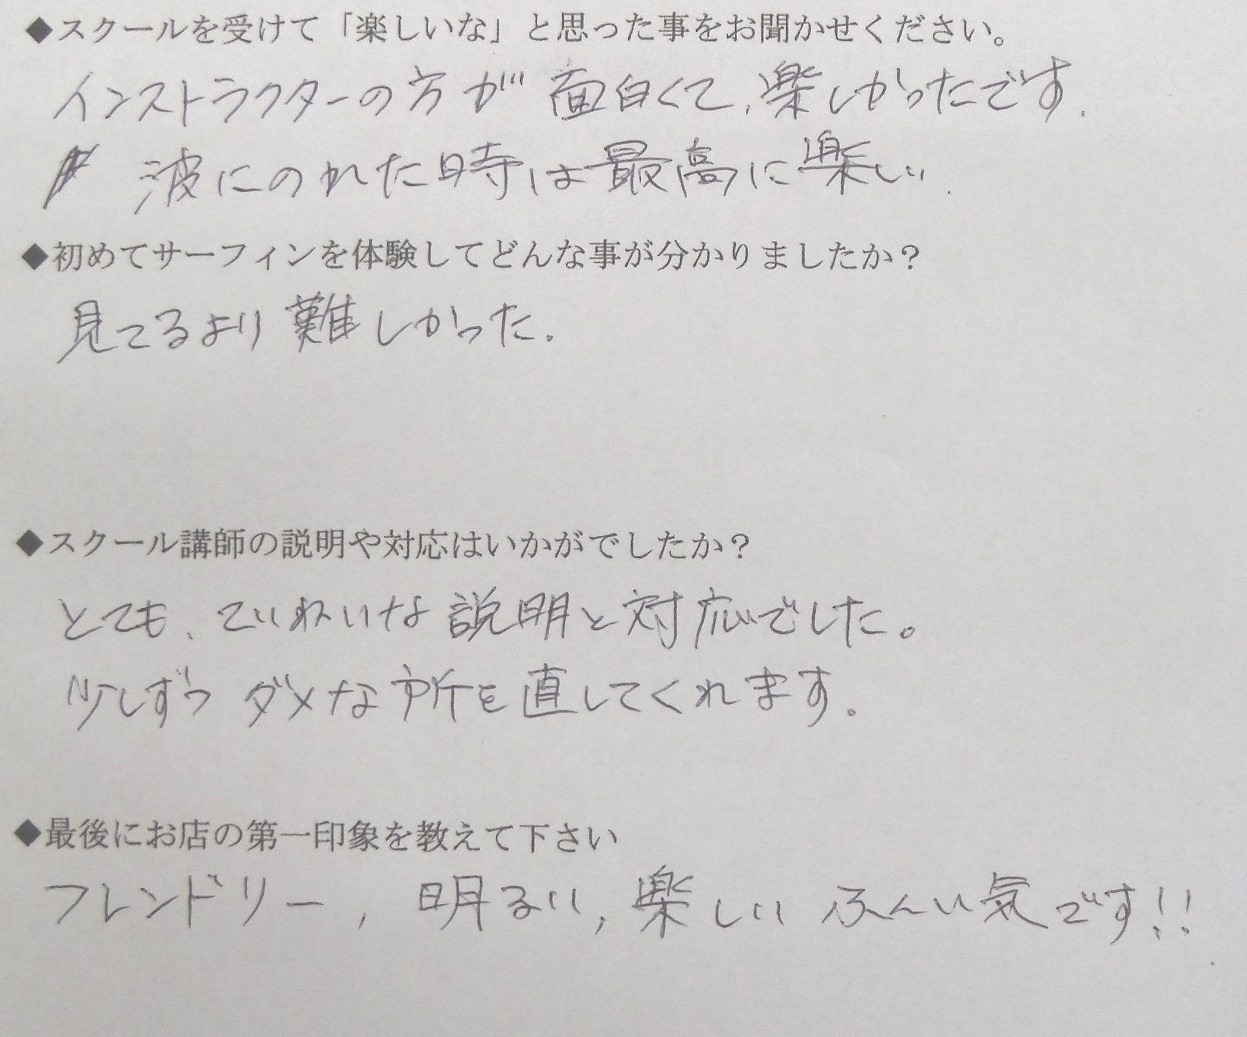 ◆スクールを受けて「楽しいな」と思った事をお聞かせください。
インストラクターの方が面白くて、楽しかったです.
波にのれた時は最高に楽しい.
◆初めてサーフィンを体験してどんな事が分かりましたか？
見てるより難しかった.
◆スクール講師の説明や対応はいかがでしたか？
とても、ていねいな説明と対応でした。
少しずつダメな所を直してくれます。
◆最後にお店の第一印象を教えて下さい
フレンドリー, 明るい, 楽しいふんい気です!!